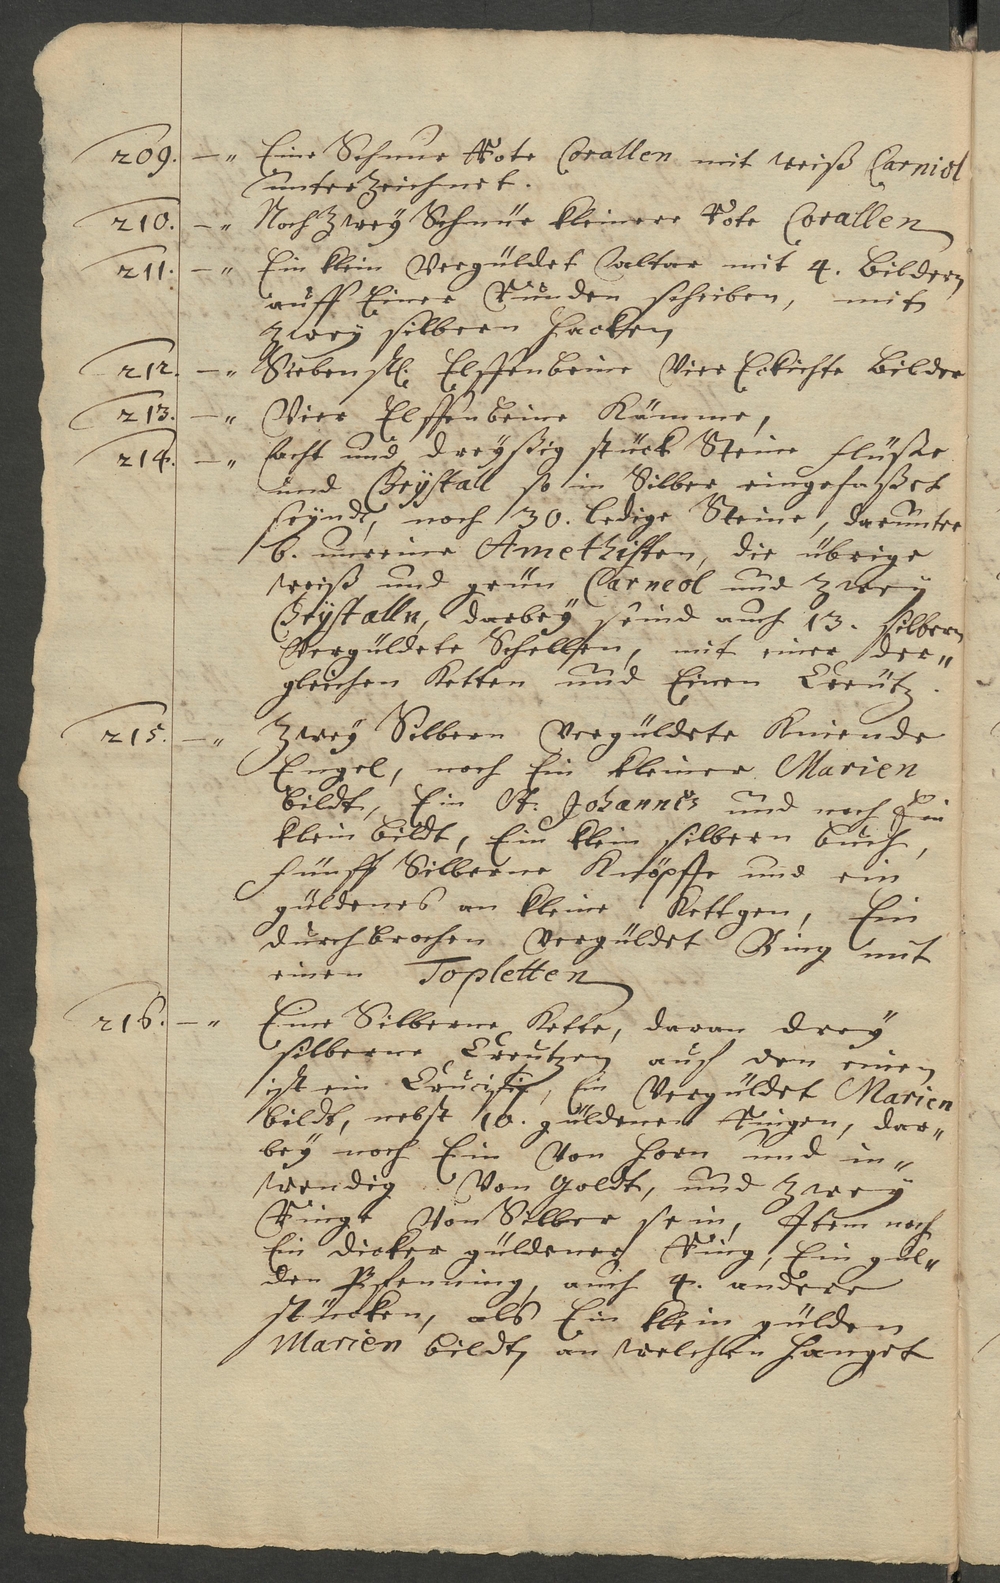 209. —„ Eine Schnur Rote Corallen mit weiß Carniol
unterzeichnet.
210. —„ Noch Zwey Schnür kleinere Rote Corallen
211. —„ Ein klein Vergüldet altar mit 4. Bildern
auff Einer Runden scheiben, mit
Zwey silbern Hacken
212. —„ Sieben st: Elffenbeine Vier Eckichte Bilder
213. —„ Vier Elffenbeine Kämme,
214. —„ Acht und dreyßig stück Steine flüße
und Crystall so in Silber eingefaßet
seyndt, noch 30. ledige Steine, darunter
6. unreine Amethisten, die übrige
weiß und grün Carneol und Zwey
Crystalln, darbey seind auch 13. silbern
Vergüldete Schellen, mit einer der„
gleichen Ketten und Einen Creütz.
215. —„ Zwey Silbern Vergüldete Kniende
Engel, noch Ein kleiner Marien
bildt, Ein St. Johannes und noch Ein
klein bildt, Ein klein silbern buch,
fünff Silberne Knöpffe und ein
güldenes an kleine Kettgen, Ein
durchbrochen Vergüldet Ring mit
einen Topletten
216. —„ Eine Silberne Kette, daran drey
silberne Creutzen auch den einen
ist ein Crucifix, Ein Vergüldet Marien
bildt, nebst 10. güldenen Ringen, dar„
bey noch Ein Von Horn und in„
wendig Von Goldt, und Zwey
Ringe Von Silber sein, Item noch
Ein dicker güldener Ring, Ein gül„
den Pfenning, auch 4. andere
stücken, als Ein klein gülden
Marien bildt, an welchen hanget